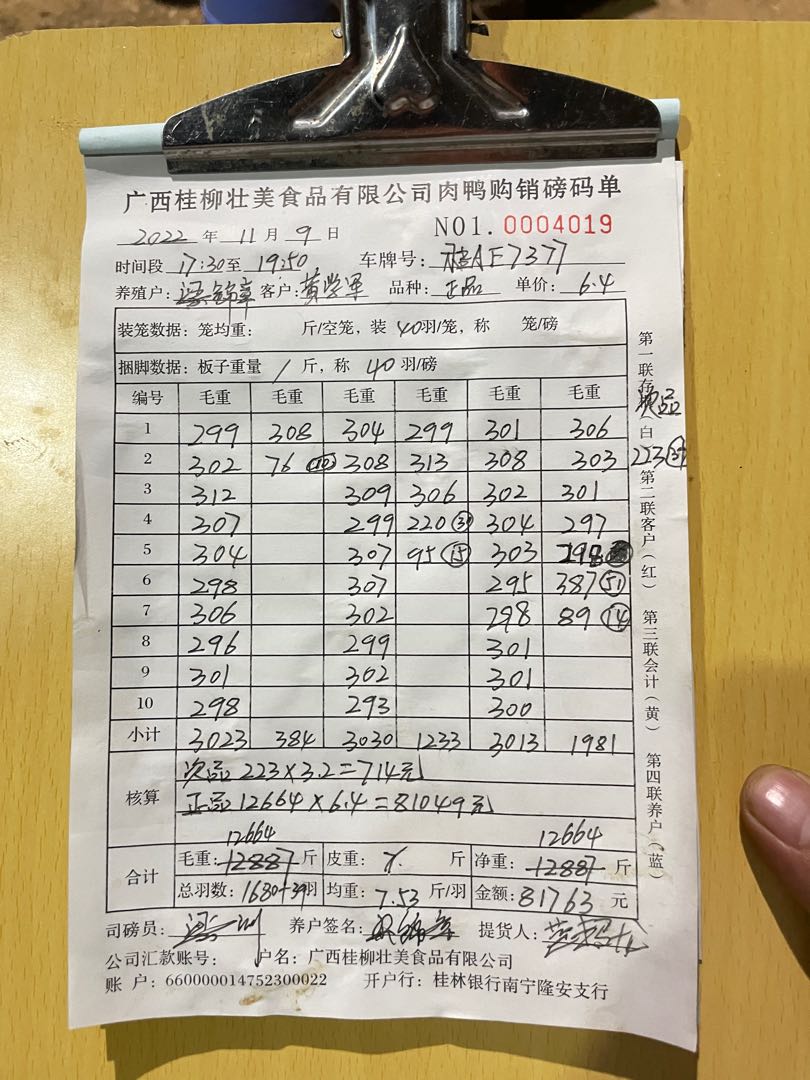 广西桂柳壮美食品有限公司肉鸭购销磅码单
2022 年 11 月 9 日 NO1. 0004019
时间段 17:30至 19:50 车牌号: 桂AF7377
养殖户: 梁锦章 客户: 黄学军 品种: 正品 单价: 6.4
装笼数据: 笼均重: 斤/空笼, 装 40羽/笼, 称 笼/磅
捆脚数据: 板子重量 / 斤, 称 40 羽/磅
编号 毛重 毛重 毛重 毛重 毛重 毛重
1 299 308 304 299 301 306
2 302 76 10 308 313 308 303
3 312 309 306 302 301
4 307 299 220 304 297
5 304 307 95 15 303 298
6 298 307 295 387 51
7 306 302 298 89 14
8 296 299 301
9 301 302 301
10 298 293 300
小计 3023 384 3030 1233 3013 1981
核算
次品 223×3.2=714元
正品 12664×6.4=81049元
12664 12664
合计
毛重: 12887 斤 皮重: 斤 净重: 12887 斤
总羽数: 1680+39羽 均重: 7.53 斤/羽 金额: 81763 元
司磅员: 养户签名: 提货人:
公司汇款账号: 户名: 广西桂柳壮美食品有限公司
账 户: 660000014752300022 开户行: 桂林银行南宁隆安支行
第一联存根(白) 第二联客户(红) 第三联会计(黄) 第四联养户(蓝)
次品
223